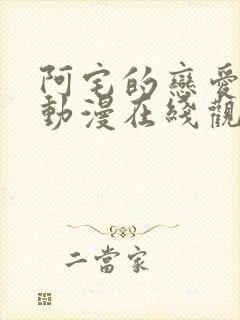 阿宅的戀愛
動漫在綫觀
二當家